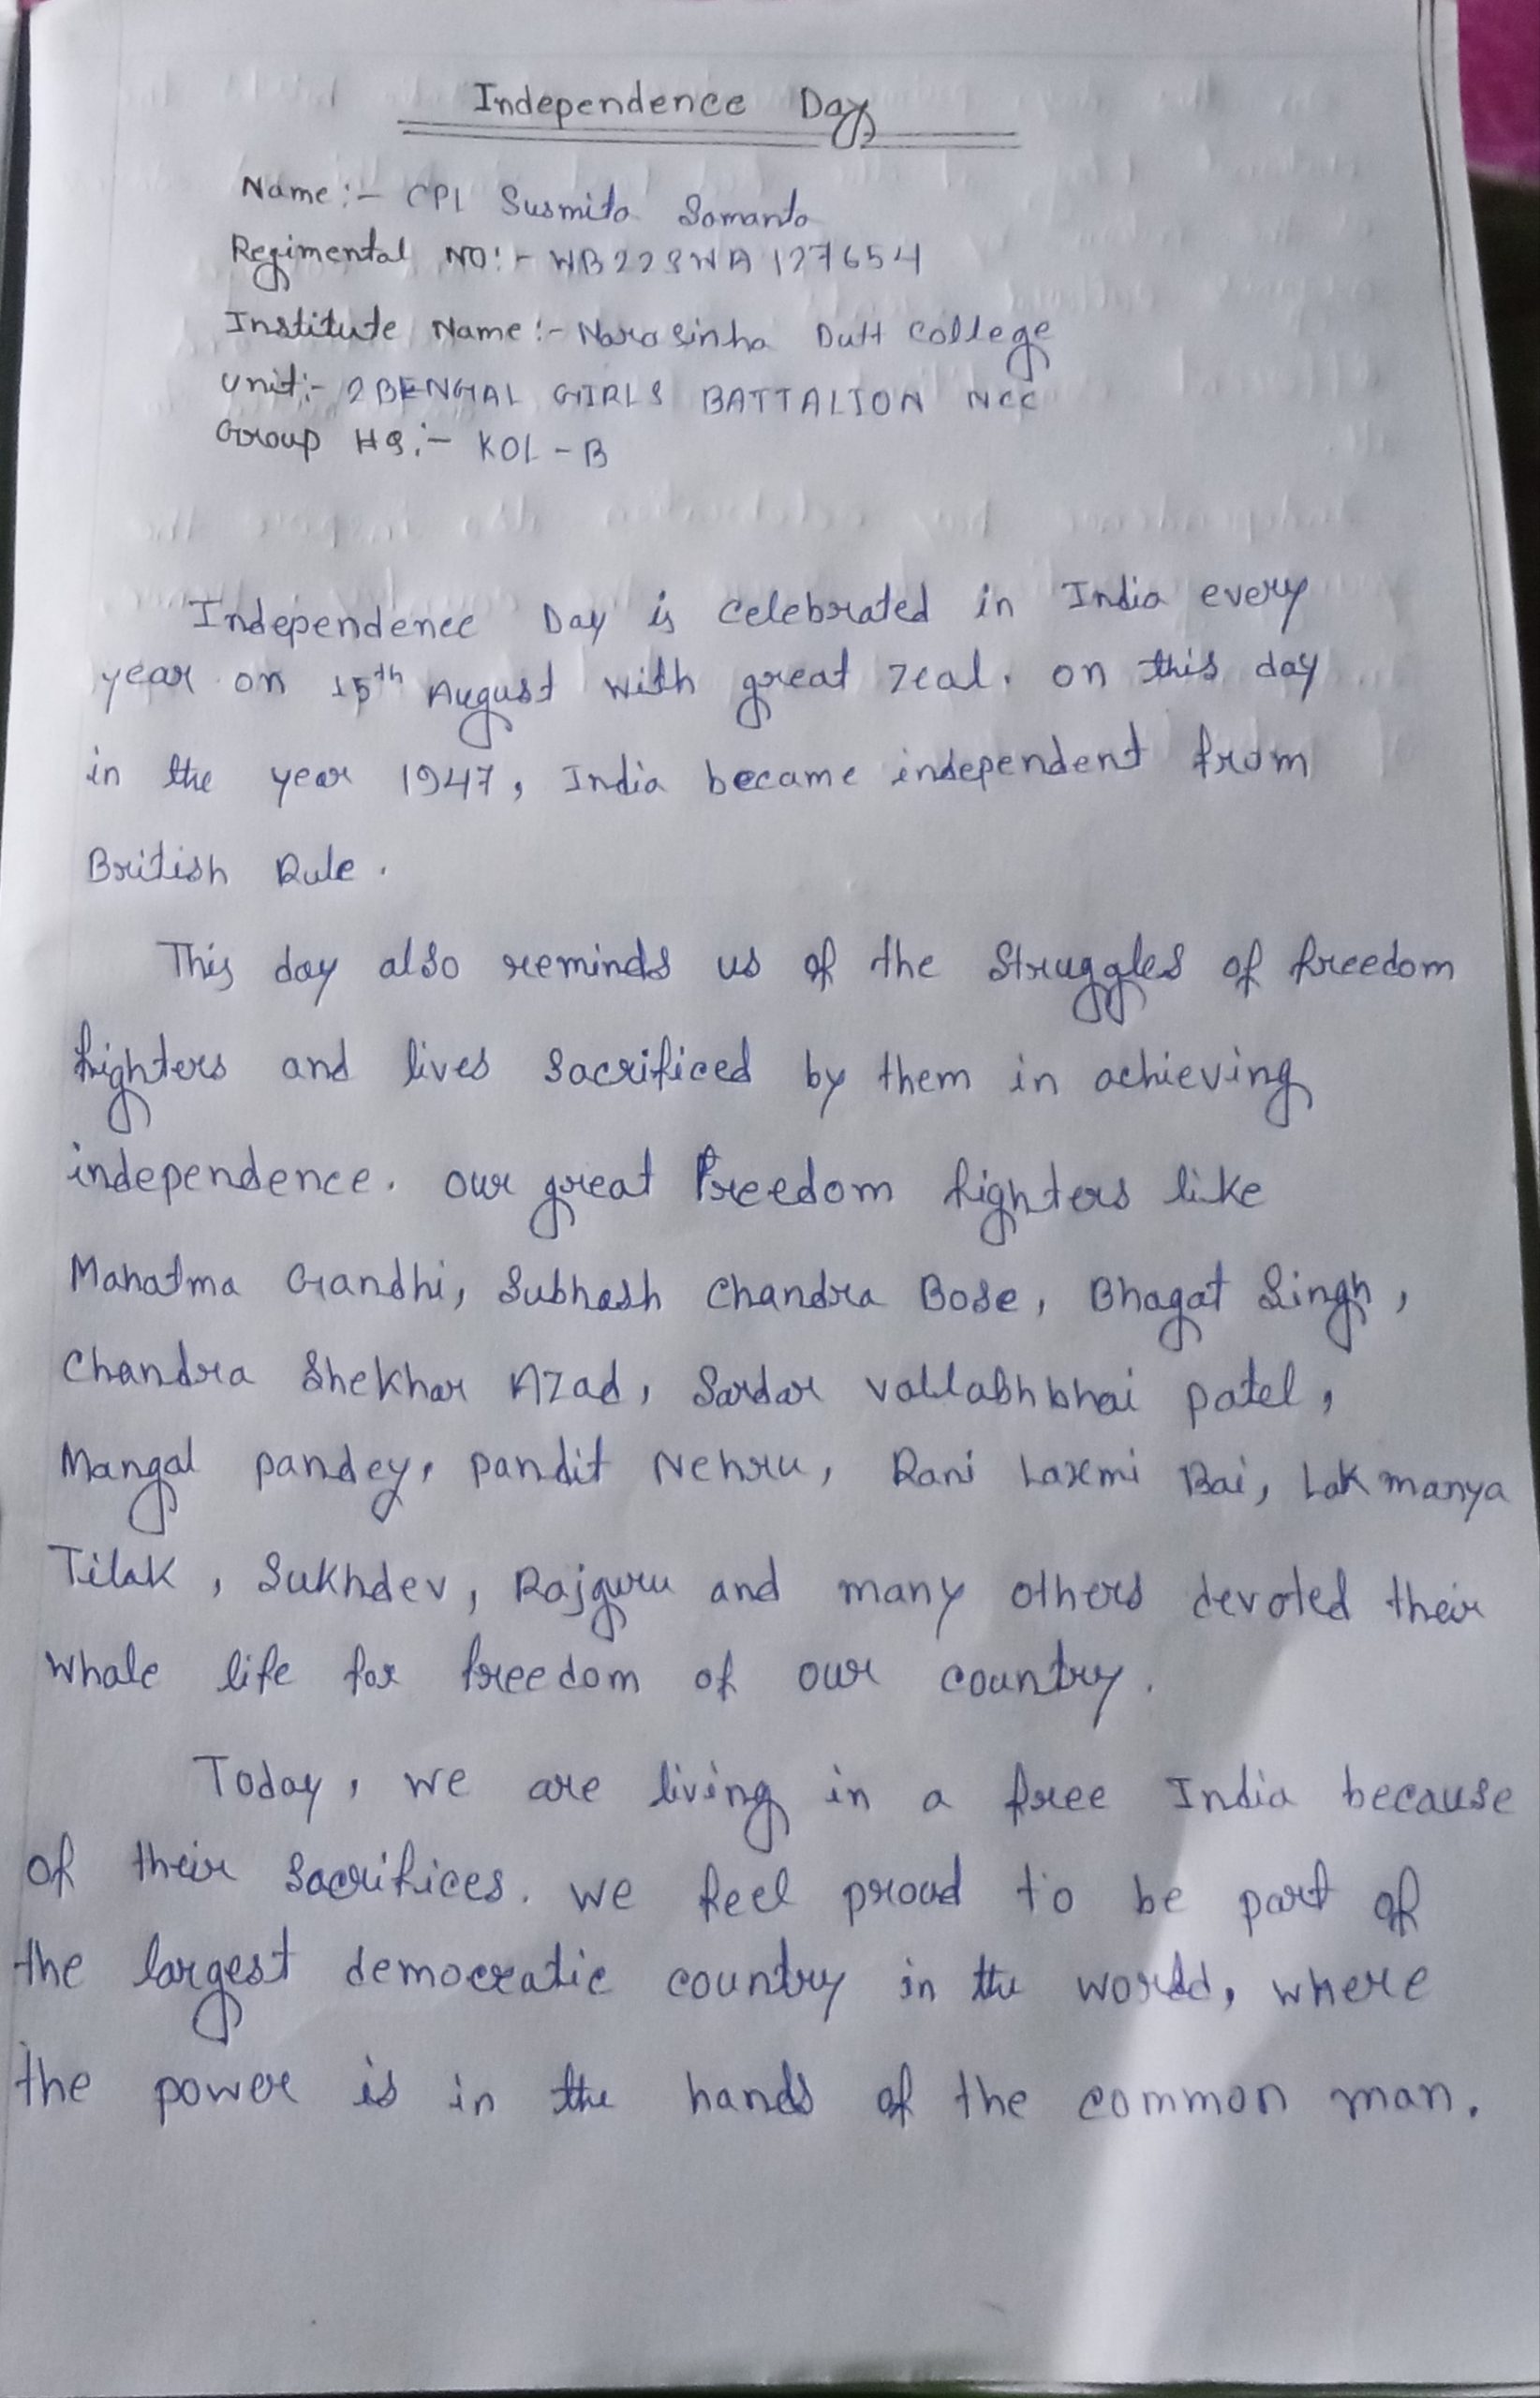 Independence Day
Name:- CPL Susmita Samanta
Regimental NO:- WB22SWA127654
Institute Name:- Narasinha Dutt College
Unit:- 2 BENGAL GIRLS BATTALION NCC
Group HQ:- KOL-B
Independence Day is celebrated in India every
year on 15th August with great zeal. on this day
in the year 1947, India became independent from
British Rule.
This day also reminds us of the struggles of freedom
fighters and lives sacrificed by them in achieving
independence. our great freedom fighters like
Mahatma Gandhi, Subhash Chandra Bose, Bhagat Singh,
Chandra Shekhar Azad, Sardar vallabhbhai patel,
Mangal pandey, pandit Nehru, Rani Laxmi Bai, Lokmanya
Tilak, Sukhdev, Rajguru and many others devoted their
whole life for freedom of our country.
Today, we are living in a free India because
of their sacrifices. we feel proud to be part of
the largest democratic country in the world, where
the power is in the hands of the common man.